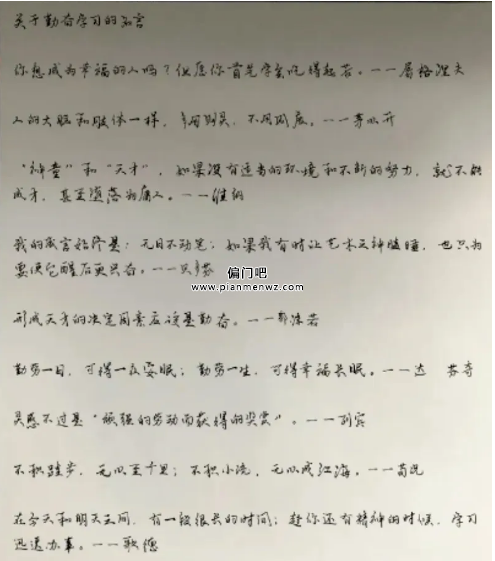 关于勤奋学习的名言
你想成为幸福的人吗？但愿你首先学会吃得起苦。——屠格涅夫
人的大脑和肢体一样，多用则灵，不用则废。——茅以升
“神童”和“天才”，如果没有适当的环境和不断的努力，就不能
成才，甚至堕落为庸人。——维纳
我的成言始终是：无日不动笔；如果我有时让艺术之神瞌睡，也只为
要使它醒后更兴奋。——贝多芬
偏门吧
www.pianmenwz.com
形成天才的决定因素应该是勤奋。——郭沫若
勤劳一日，可得一夜安眠；勤劳一生，可得幸福长眠。——达 芬奇
灵感不过是“顽强的劳动而获得的奖赏”。——列宾
不积跬步，无以至千里；不积小流，无以成江海。——荀况
在今天和明天之间，有一段很长的时间；趁你还有精神的时候，学习
迅速办事。——歌德